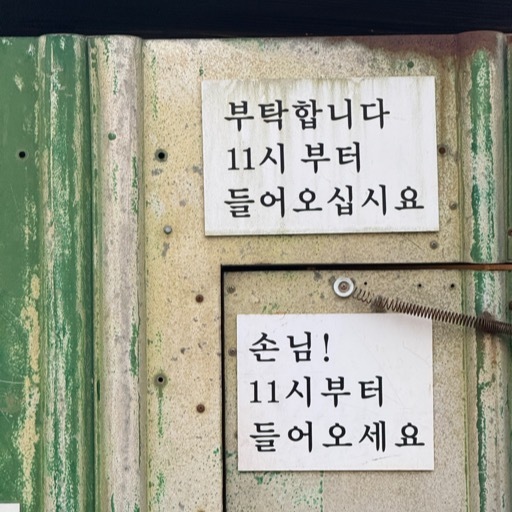 부탁합니다
11시 부터
들어오십시요
손님!
11시부터
들어오세요